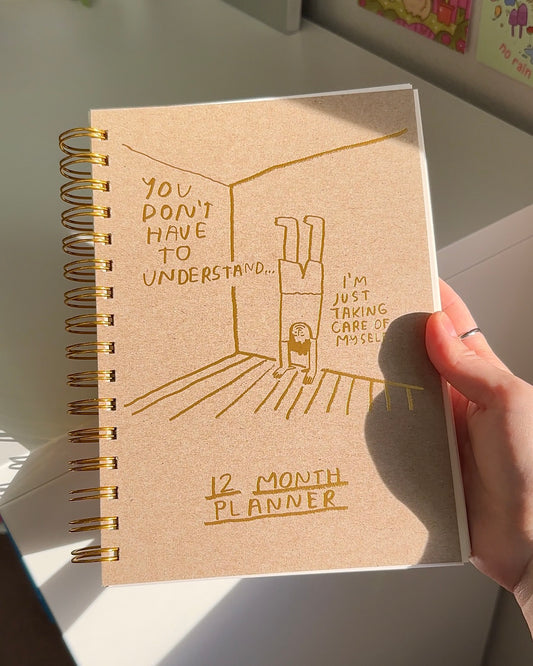 YOU
DON'T
HAVE
TO
UNDERSTAND...
I'M
JUST
TAKING
CARE OF
MYSELF
12 MONTH
PLANNER
no rain